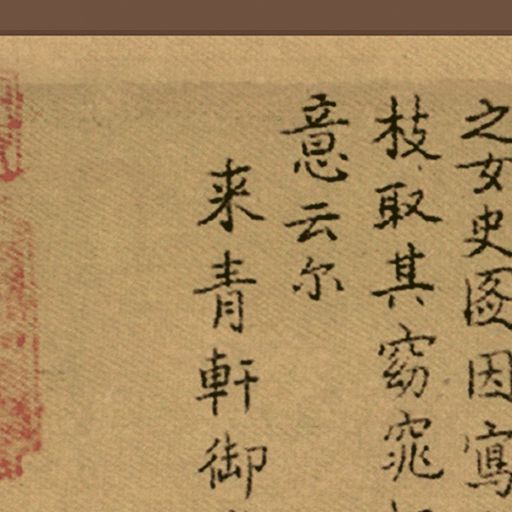 之女史图因寫
枝取其窈窕
意云尔
来青軒御